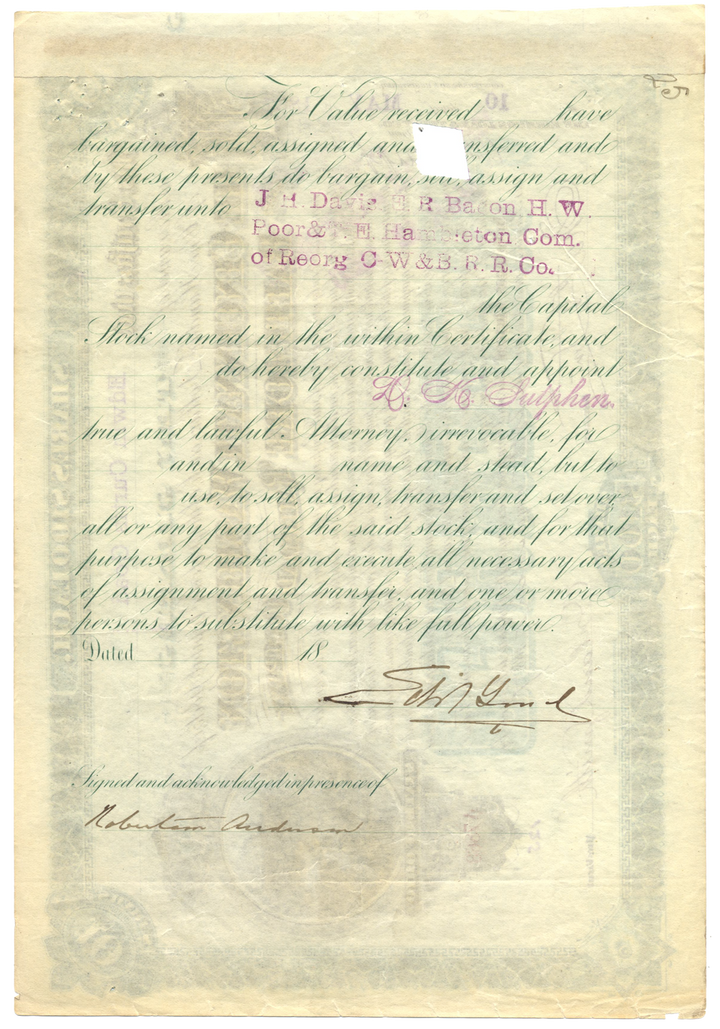 25
For Value received have
bargained, sold, assigned and nsferred and
by these presents do bargain, sell, assign and
transfer unto J. H. Davis E. R. Bacon H. W.
Poor & T. E. Hambleton Com.
of Reorg C-W & B. R. R. Co.
the Capital
Stock named in the within Certificate, and
do hereby constitute and appoint
D. K. Sutphen.
true and lawful Attorney, irrevocable, for
and in name and stead, but to
use, to sell, assign, transfer and set over
all or any part of the said stock, and for that
purpose to make and execute, all necessary acts
of assignment and transfer, and one or more
persons to substitute with like full power.
Dated 18
Signed and acknowledged in presence of
Robertson Anderson